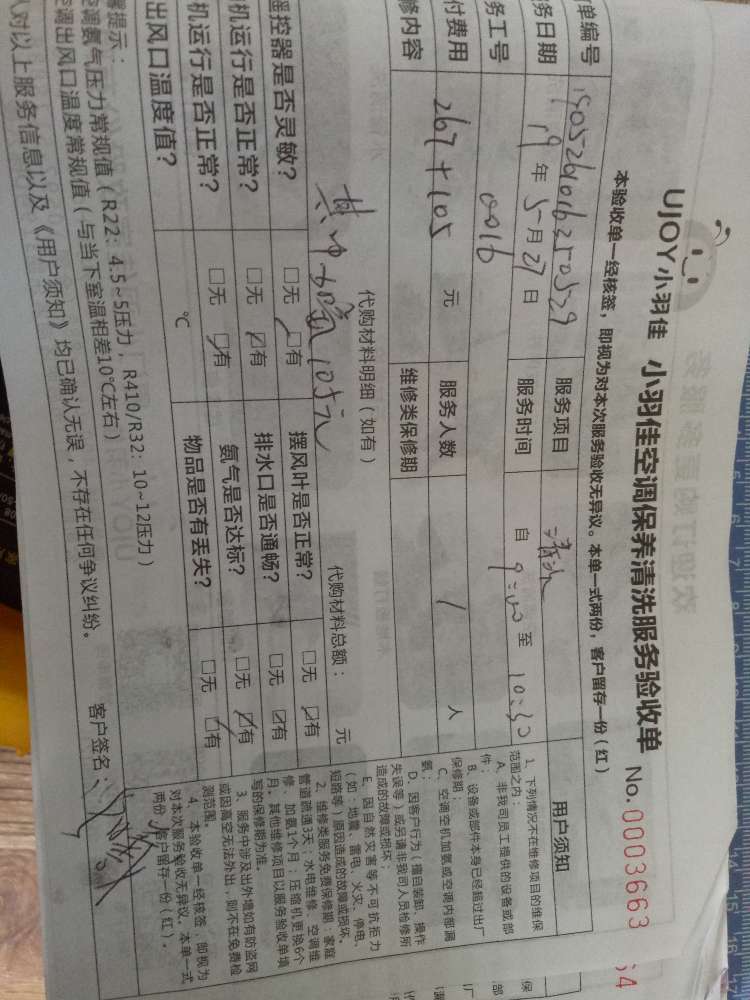 UJOY小羽佳 小羽佳空调保养清洗服务验收单 No. 0003663
本验收单一经核签，即视为对本次服务验收无异议。本单一式两份，客户留存一份（红）
单编号 服务项目 清洗
务日期 19年5月27日 服务时间 自9:00至10:30
务工号 0016
付费用 267+105 元 服务人数 1 人
修内容 维修类保修期
代购材料明细（如有） 代购材料总额： 元
105元
遥控器是否灵敏？ □无 ☑有 摆风叶是否正常？ □无 ☑有
机运行是否正常？ □无 ☑有 排水口是否通畅？ □无 ☑有
机运行是否正常？ □无 ☑有 氨气是否达标？ □无 ☑有
出风口温度值？ ℃ 物品是否有丢失？ □无 ☑有
提示：
调氨气压力常规值（R22：4.5~5压力，R410/R32：10~12压力）
调出风口温度常规值（与当下室温相差10℃左右）
人对以上服务信息以及《用户须知》均已确认无误，不存在任何争议纠纷。
客户签名：
用户须知
1、下列情况不在维修项目的维保
范围之内：
A、非我司员工提供的设备或部
件；
B、设备或部件本身已经超过出厂
保修期；
C、空调空机加氨或空调内部漏
氨；
D、因客户行为（擅自装卸、操作
失误等）或另请非我司人员检修所
造成的故障或损坏；
E、因自然灾害等不可抗拒力
（如：地震、雷电、火灾、停电、
短路等）原因造成的故障或损坏。
2、维修类服务免费保修期：家庭
管道疏通3天；水电维修、空调维
修、加氨1个月；压缩机更换6个
月。其他维修项目以服务验收单填
写的保修期为准。
3、服务中涉及出外墙如有防盗网
或因高空无法外出，则不在免费检
测范围。
4、本验收单一经核签，即视为
对本次服务验收无异议。本单一式
两份，客户留存一份（红）。